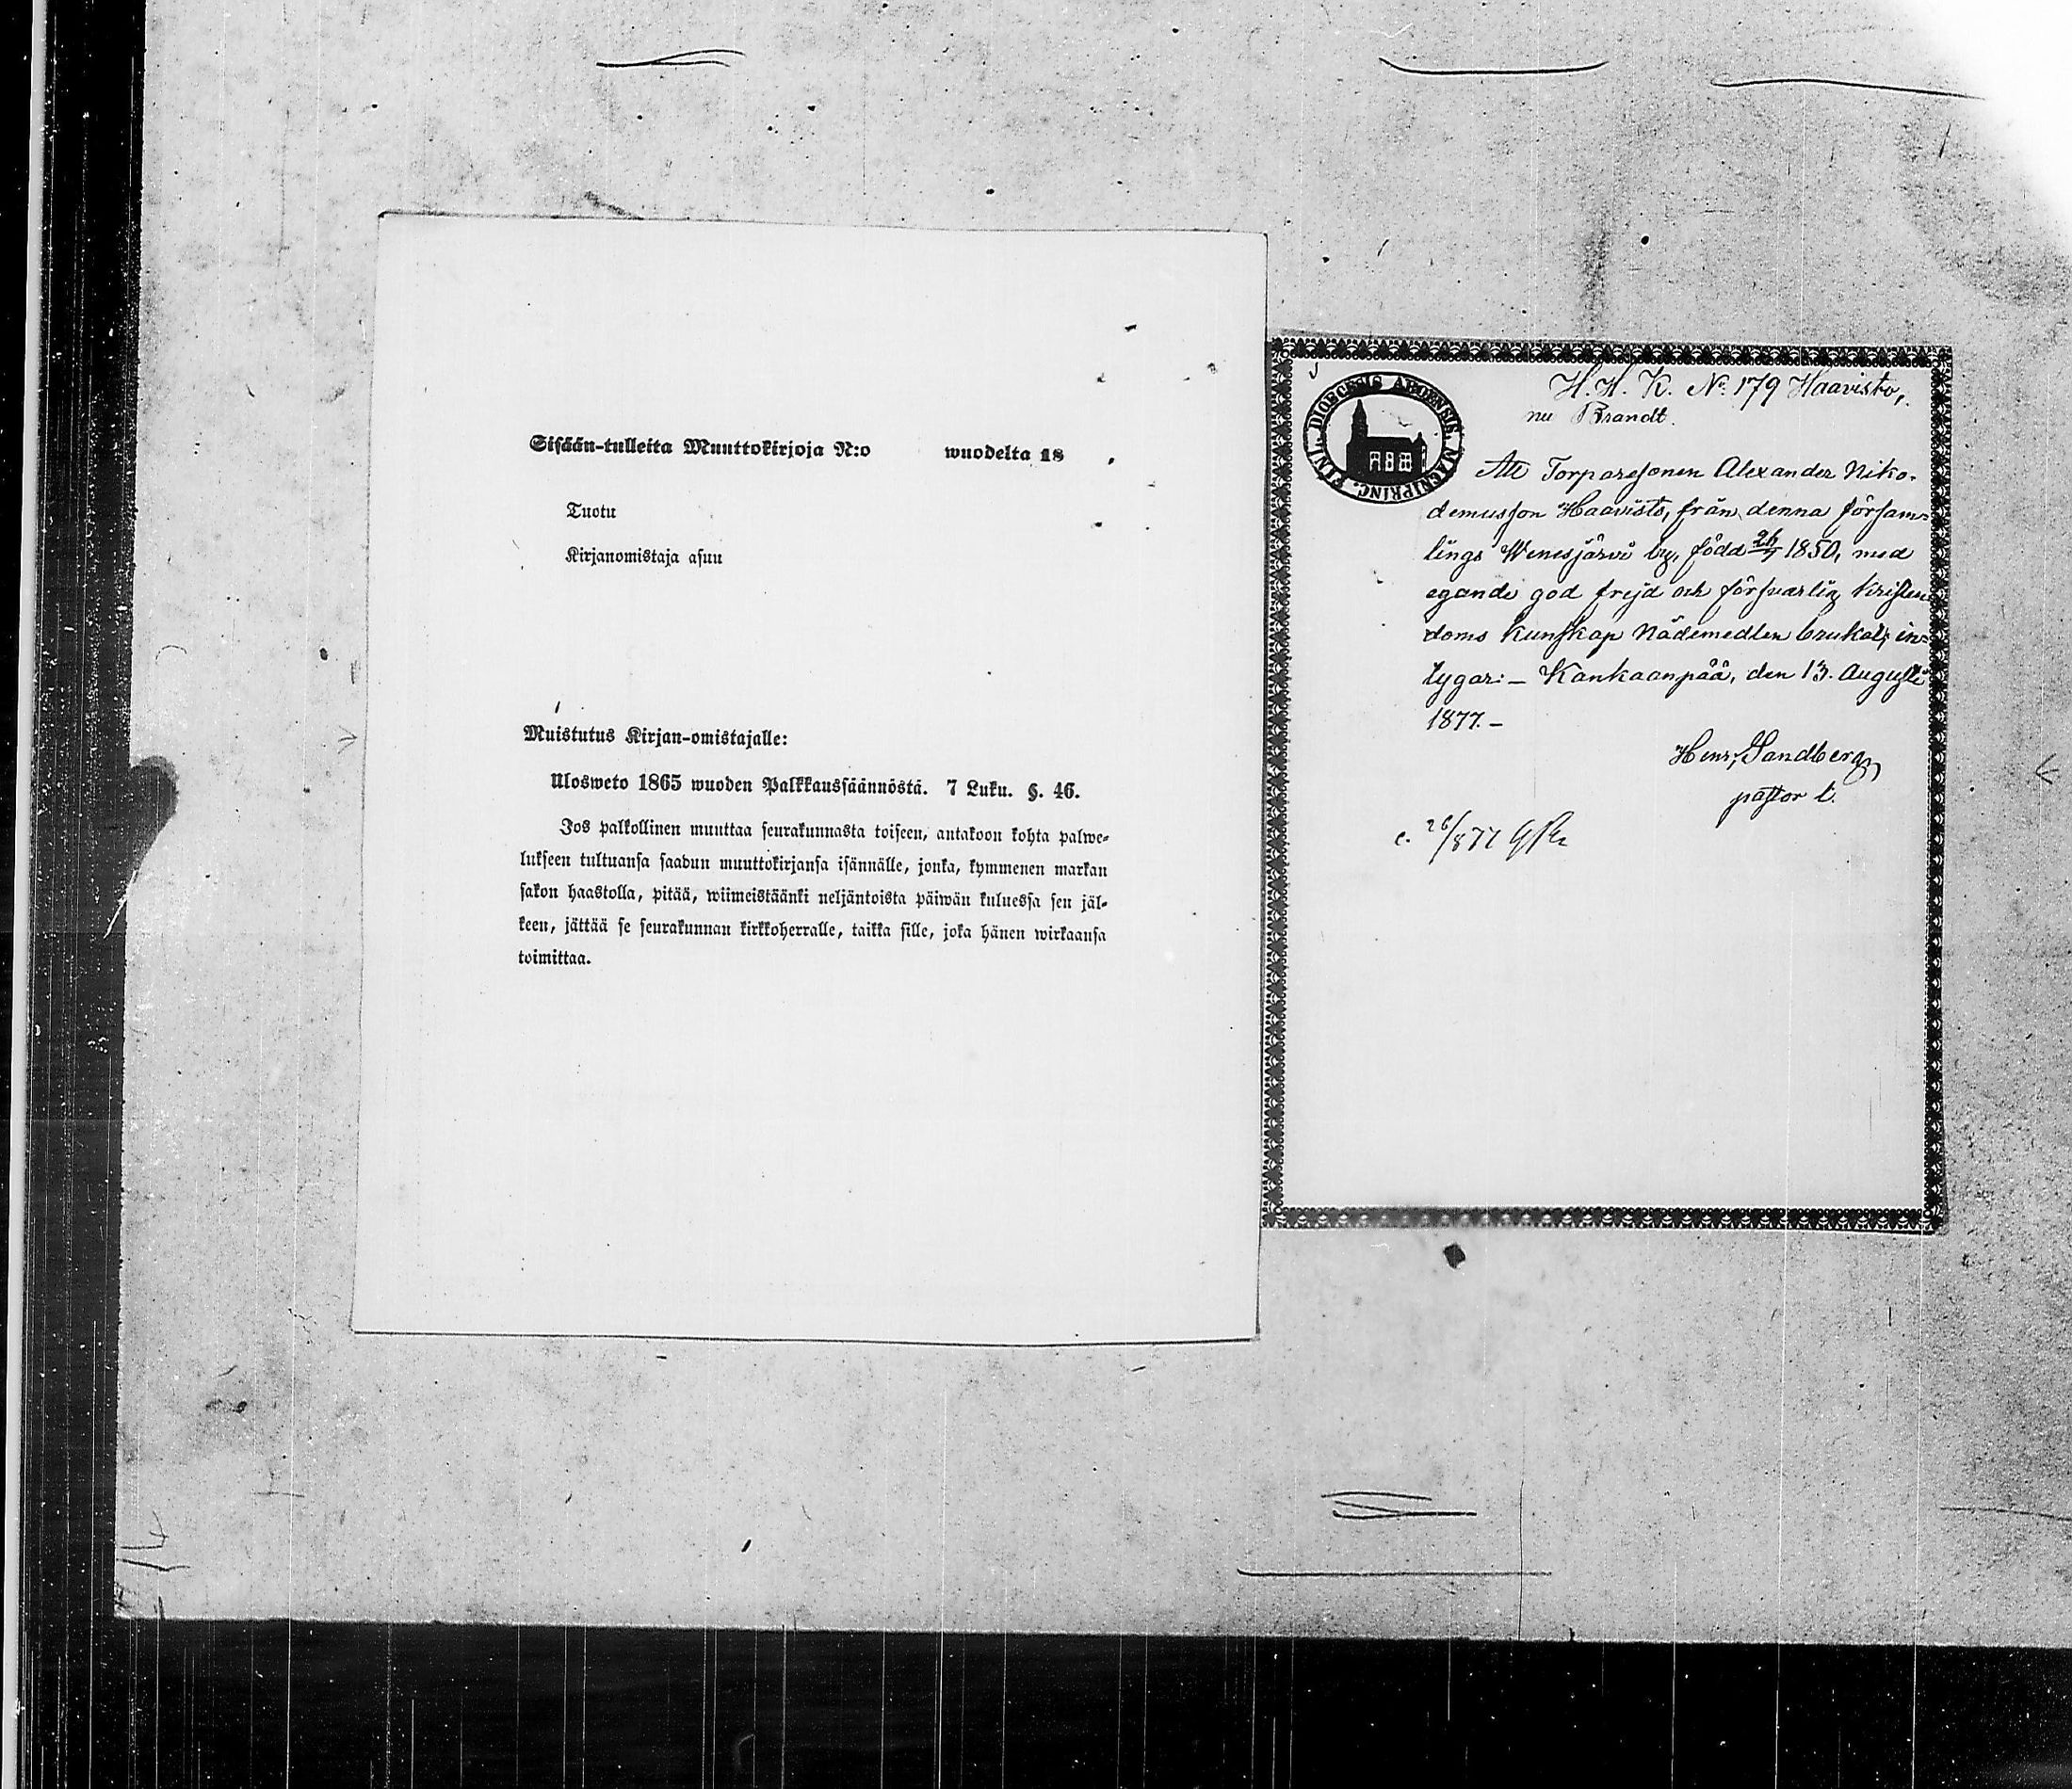 Sisään-tulleita Muuttokirjoja N:o wuodelta 18
Tuotu
Kirjanomistaja asuu
Muistutus Kirjan-omistajalle:
Ulosweto 1865 wuoden Palkkaussäännöstä. 7 Luku. §. 46.
Jos palkollinen muuttaa seurakunnasta toiseen, antakoon kohta palwe-
lukseen tultuansa saadun muuttokirjansa isännälle, jonka, kymmenen markan
sakon haastolla, pitää, wiimeistäänki neljäntoista päiwän kuluessa sen jäl-
keen, jättää se seurakunnan kirkkoherralle, taikka sille, joka hänen wirkaansa
toimittaa.
FINL. DIOECESIS ABOENSIS. MAGNIPRINC.
H. H. K. No. 179 Haavisto,
nu Brandt.
Att Torparesonen Alexander Niko-
demusson Haavisto, från denna försam-
lings Wenesjärvi by, född 26/7 1850, med
egande god frejd och försvarlig Kristen-
doms Kunskap Nådemedlen brukat, in-
tygar: – Kankaanpää, den 13. Augusti
1877. –
Henr. Sandberg,
pastor l.
c. 26/877